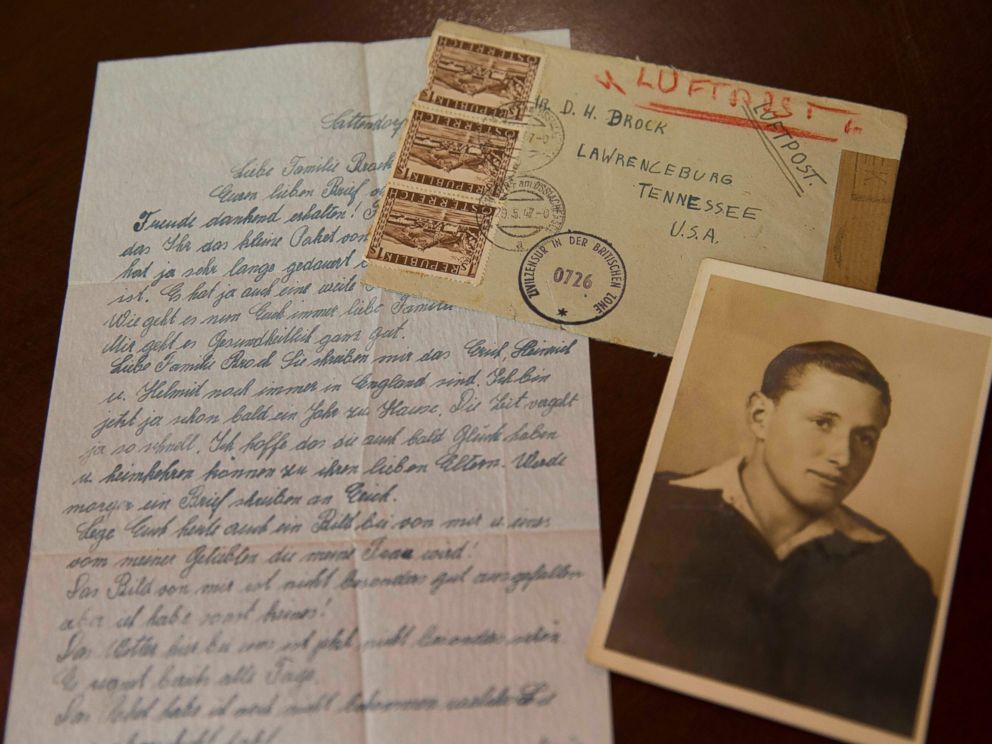 Sattendorf
Liebe Familie Brock
Euren lieben Brief
Freude dankend erhalten!
das Ihr das kleine Paket von
hat ja sehr lange gedauert
ist. Es hat ja auch eine weile
Wie geht es nun Euch immer liebe Familie
Mir geht es Gesundheitlich ganz gut.
Liebe Familie Brock Sie schreiben mir das Erich, Heinrich
u. Helmut noch immer in England sind. Ich bin
jetzt ja schon bald ein Jahr zu Hause. Die Zeit vergeht
ja so schnell. Ich hoffe das die auch bald Glück haben
u. heimkehren können zu ihren lieben Eltern. Werde
morgen ein Brief schreiben an Erich.
Lege Euch heute auch ein Bild bei von mir u. eines
vom meiner Geliebten die meine Frau wird!
Das Bild von mir ist nicht besonders gut ausgefallen
aber ich habe sonst keines!
Das Wetter hier bei uns ist jetzt nicht besonders schön
Es regnet bereits alle Tage.
Das Paket habe ich noch nicht bekommen welches Sie
REPUBLIK ÖSTERREICH
REPUBLIK ÖSTERREICH
REPUBLIK ÖSTERREICH
LUFTPOST
LUFTPOST.
D. H. BROCK
LAWRENCEBURG
TENNESSEE
U.S.A.
ZIVILZENSUR IN DER BRITISCHEN ZONE
0726